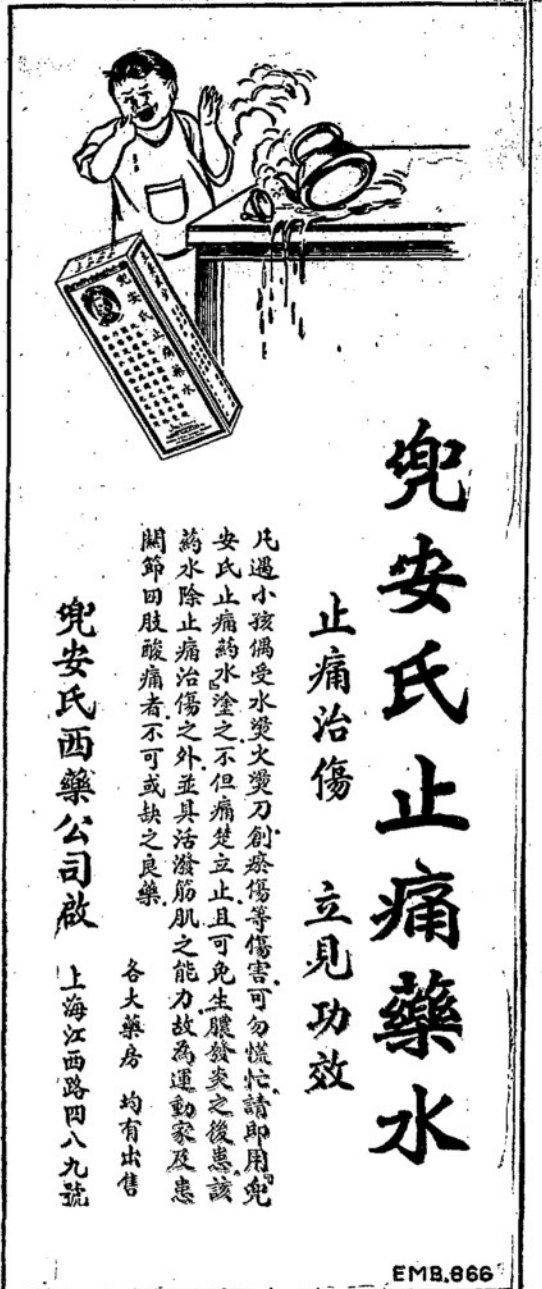 兜安氏止痛藥水
止痛治傷 立見功效
凡遇小孩偶受水燙火燙刀創瘀傷等傷害可勿慌忙請即用『兜
安氏止痛葯水』塗之不但痛楚立止且可免生膿發炎之後患該
葯水除止痛治傷之外並具活潑筋肌之能力故為運動家及患
關節四肢酸痛者不可或缺之良藥
各大藥房 均有出售
兜安氏西藥公司啟 上海江西路四八九號
兜安氏止痛藥水
EMB.866